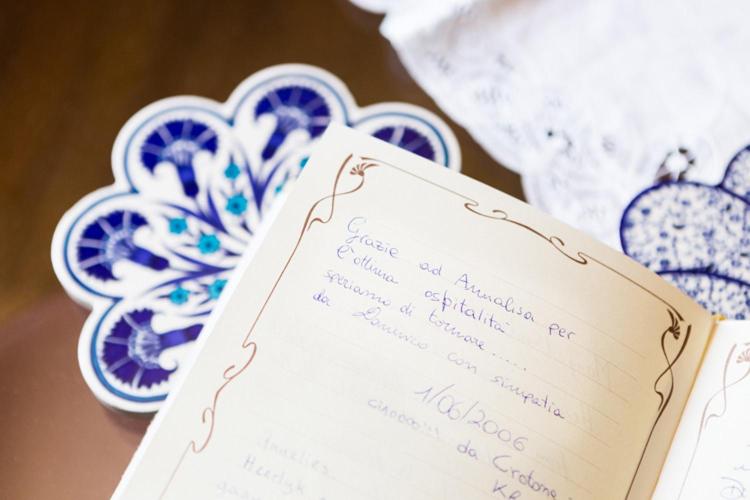 Grazie ad Annalisa per
l'ottima ospitalità
speriamo di tornare......
da con simpatia
1/06/2006
da Crotone
Annelies
Heerlijk